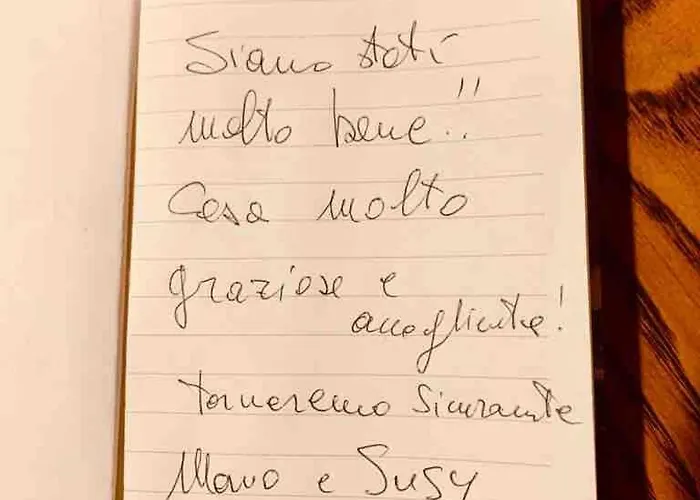 Siamo stati
molto bene!!
Casa molto
graziosa e
accogliente!
torneremo sicuramente
e Susy